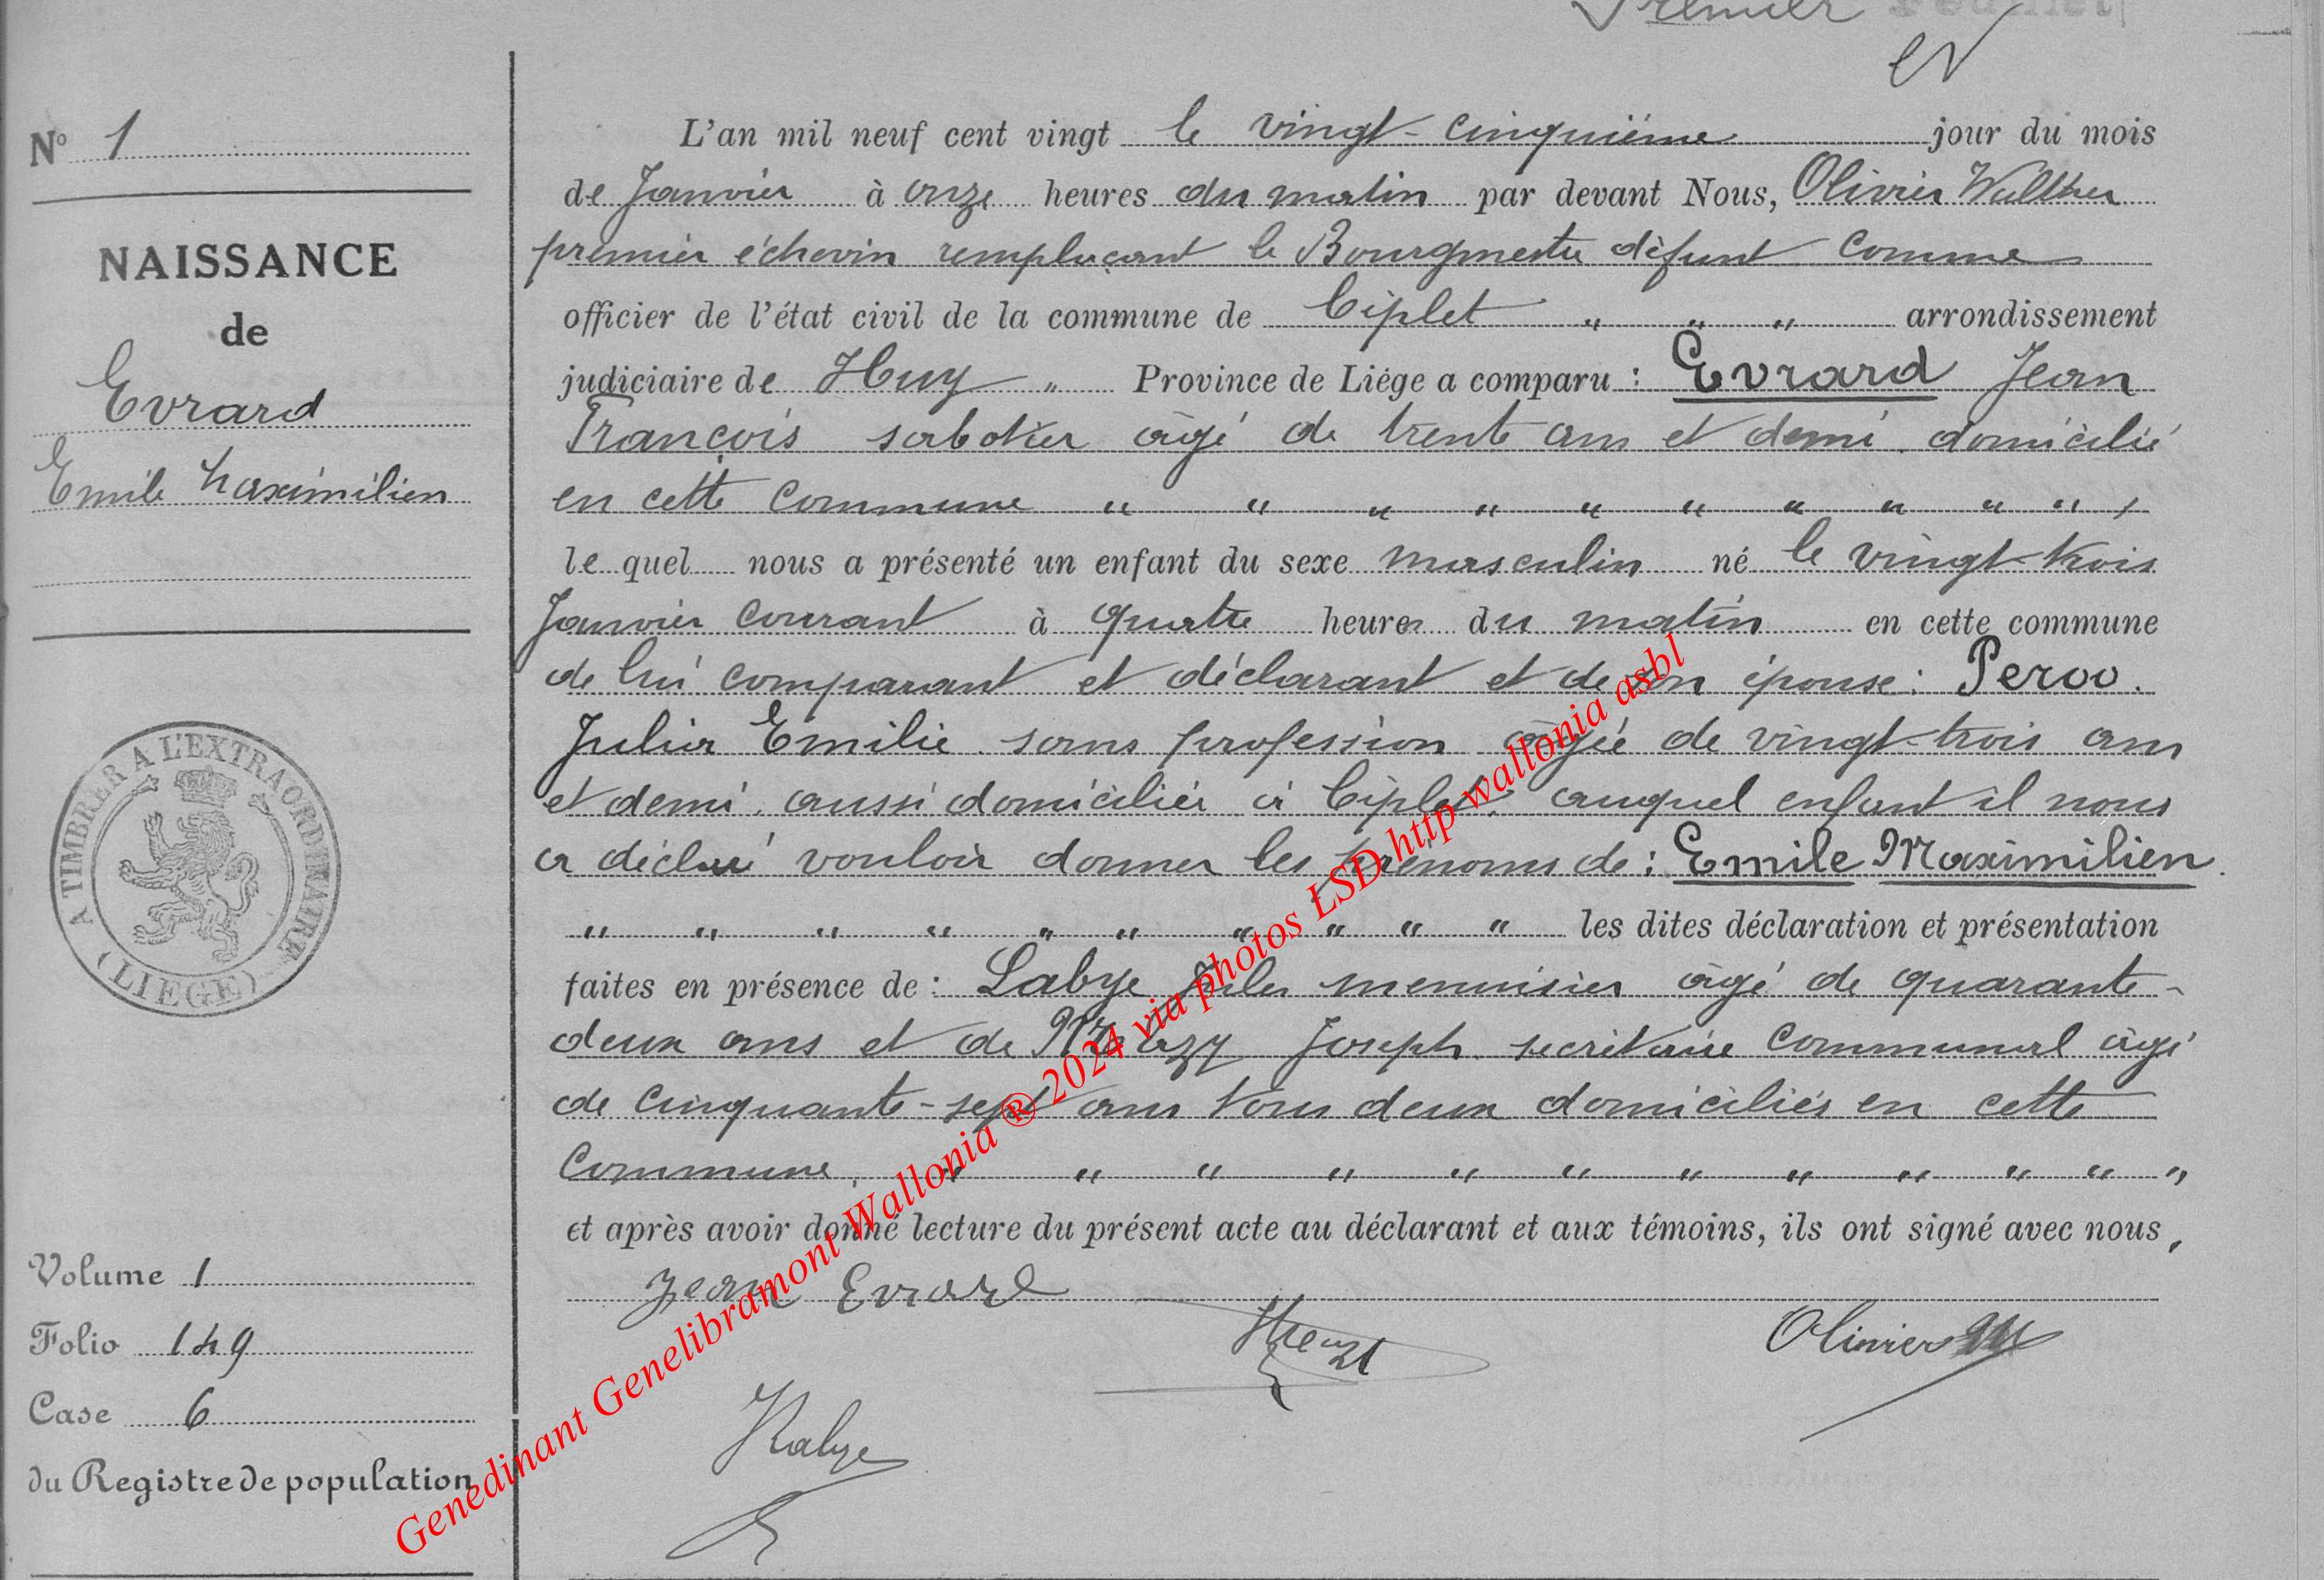 Premier Feuillet
N° 1
NAISSANCE
de
Evrard
Emile Maximilien
A TIMBRER A L'EXTRAORDINAIRE
(LIEGE)
Volume 1
Folio 149
Case 6
du Registre de population
L'an mil neuf cent vingt le vingt-cinquième jour du mois
de Janvier à onze heures du matin par devant Nous, Olivier Walther
premier échevin remplaçant le Bourgmestre défunt comme
officier de l'état civil de la commune de Ciplet " " " arrondissement
judiciaire de Huy " Province de Liége a comparu : Evrard Jean
François sabotier âgé de trente ans et demi, domicilié
en cette commune " " " " " " " " " "
le quel nous a présenté un enfant du sexe masculin né le vingt-trois
Janvier courant à quatre heures du matin en cette commune
de lui comparant et déclarant et de son épouse : Peroo.
Julia Emilie sans profession âgée de vingt-trois ans
et demi, aussi domiciliée à Ciplet, auquel enfant il nous
a déclaré vouloir donner les prénoms de : Emile Maximilien.
" " " " " " " " " " les dites déclaration et présentation
faites en présence de : Labye Jules menuisier âgé de quarante-
deux ans et de Joseph secrétaire communal âgé
de cinquante-sept ans tous deux domiciliés en cette
commune, " " " " " " " " " " " "
et après avoir donné lecture du présent acte au déclarant et aux témoins, ils ont signé avec nous,
Jean Evrard
Olivier W
Labye
Genedinant Genelibramont Wallonia ® 2024 via photos LSD http wallonia asbl